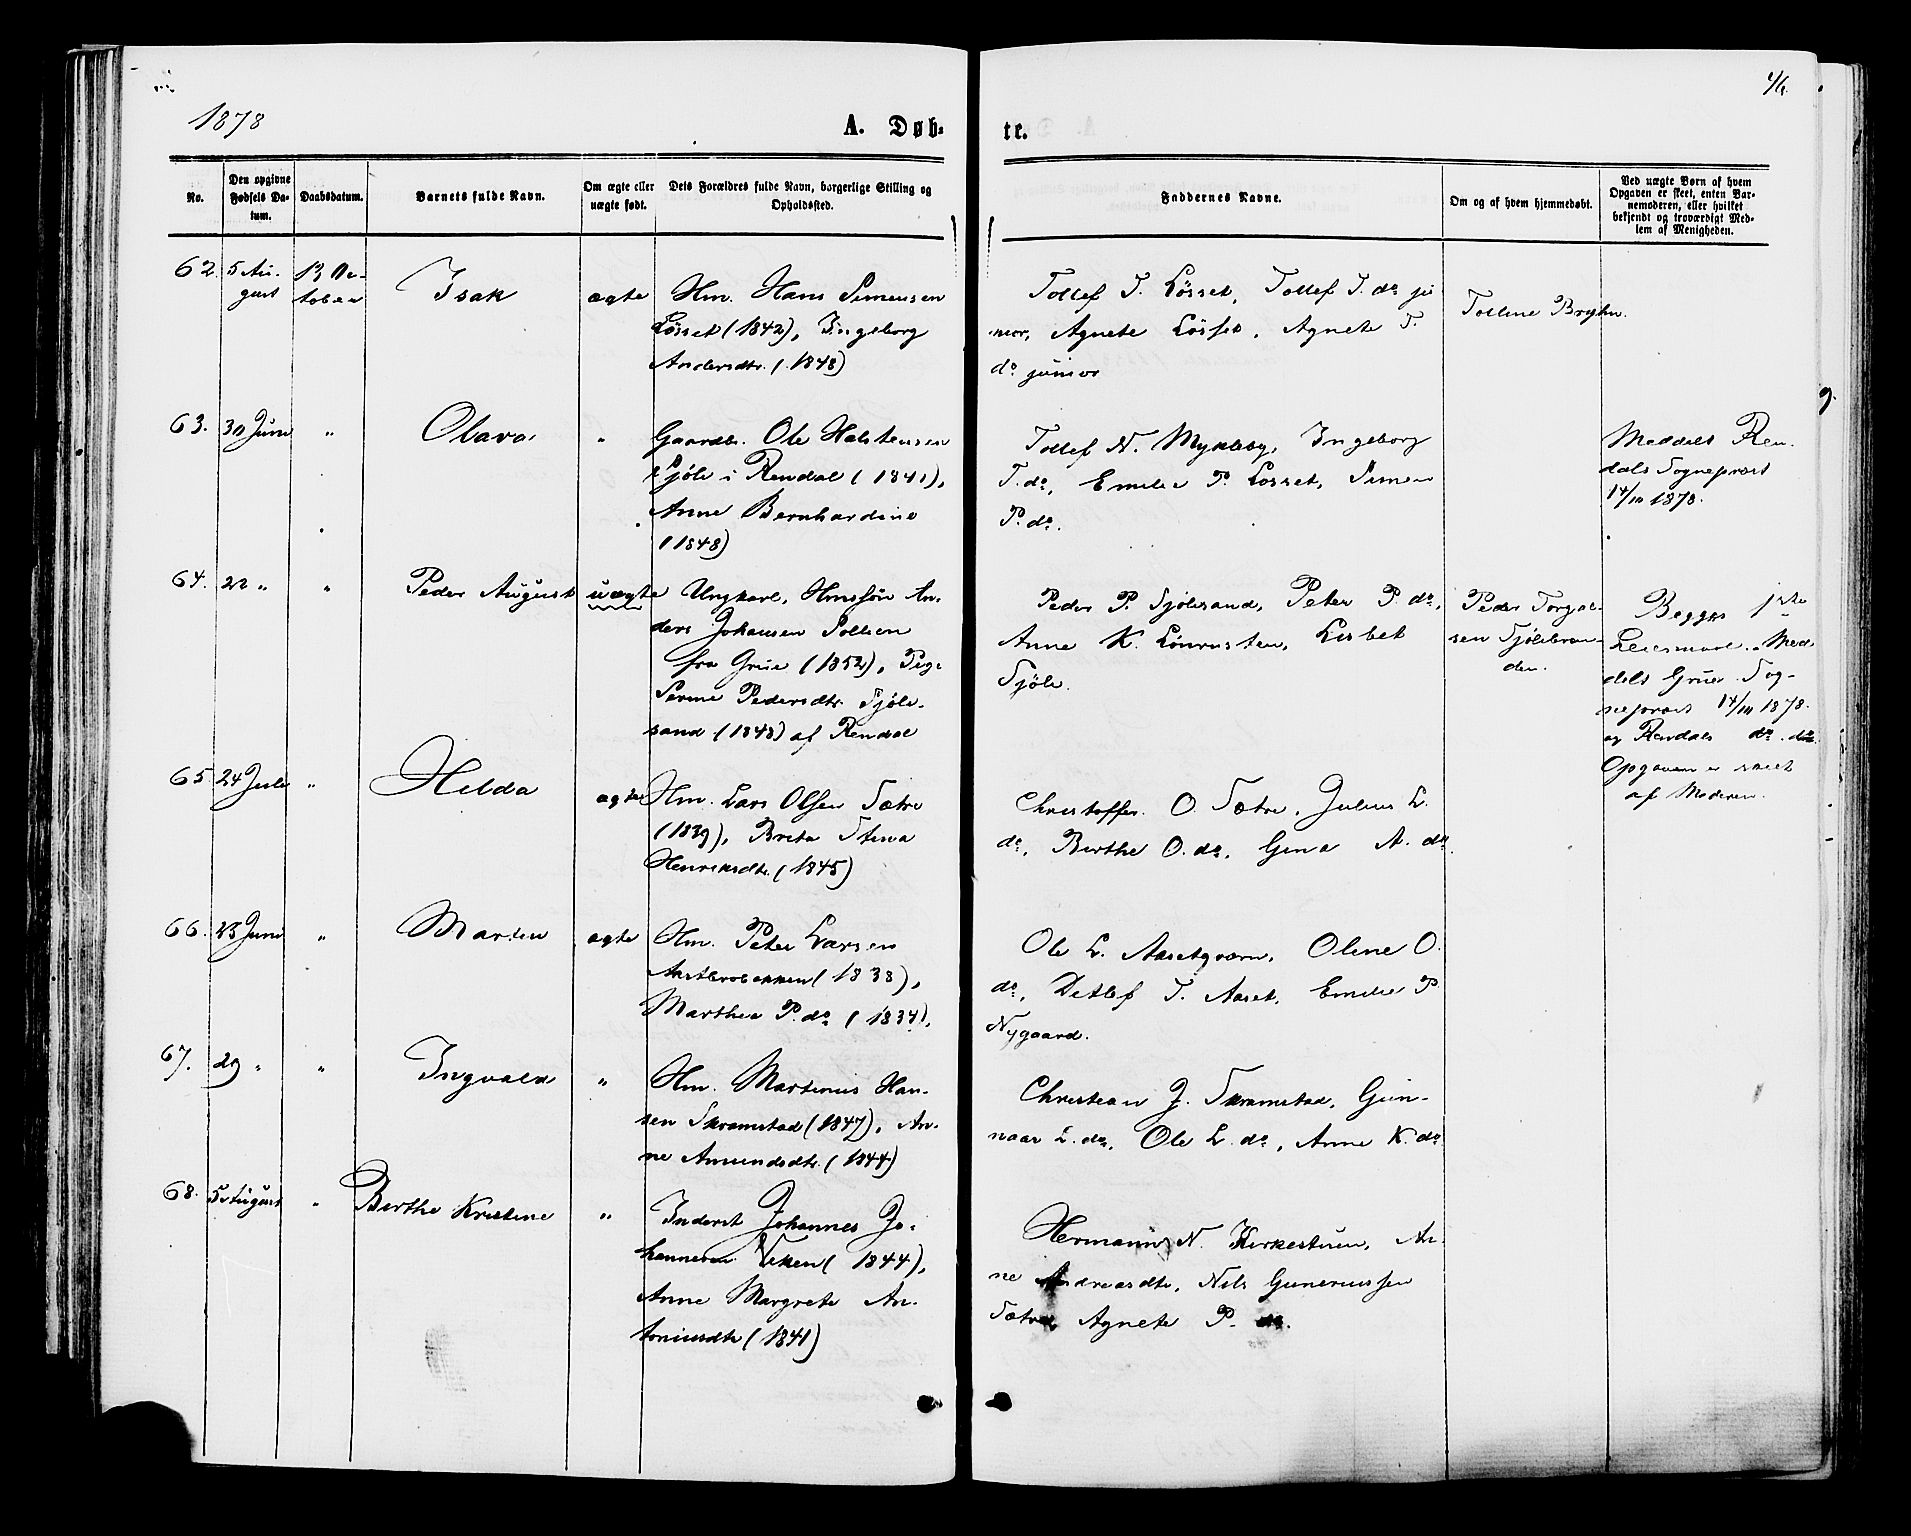 1878
A. Døb-
te.
No.
Den opgivne
Fødsels Da-
tum.
Daabsdatum.
Barnets fulde Navn.
Om ægte eller
uægte født.
Dets Forældres fulde Navn, borgerlige Stilling og
Opholdssted.
Faddernes Navne.
Om og af hvem hjemmedøbt.
Ved uægte Børn af hvem
Opgaven er skeet, enten Bar-
nemoderen, eller hvilket
bekjendt og troværdigt Med-
lem af Menigheden.
62. 5 Au-
gust
13 Oc-
tober
Isak
ægte
Hm. Hans Simensen
Løsset (1842), Ingeborg
Andersdtr. (1848)
Tollef T. Løsset, Tollef T. do ju-
nior, Agnete Løsset, Agnete T.
do junior
Tolline Bryhn.
63. 30 Juni "
Olava
"
Gaardbr. Ole Halstensen
Sjøli i Rendal (1841),
Anne Bernhardine
(1848)
Tollef N. Mykleby, Ingeborg
T. do, Emilie P. Løsset, Simen
P. do.
Meddelt Ren-
dals Sogneprest
14/10 1878.
64. 22 " "
Peder August
uægte
Ungkarl, Hmssøn An-
ders Johansen
fra Grue (1852), Pige
Serine Pedersdtr. Sjøli-
sand (1848) af Rendal
Peder P. Sjølisand, Peter P. do,
Anne K. Lønrusten, Lisbet
Sjøli.
Peder Torgal-
sen Sjølistran-
den.
Begges 1ste
Leiermaal. Med-
delt Grue Sog-
neprest 14/10 1878.
og Rendals do. do.
Opgaven er skeet
af Moderen.
65. 24 Juli "
Hilda
ægte
Hm. Lars Olsen Sætre
(1839), Brita Stina
Henriksdtr. (1845)
Christoffer O. Sætre, Julius L.
do, Berthe O. do, Gina A. do.
66. 23 Juni "
Martin
ægte
Hm. Peter Larsen
(1838),
Marthea P. do (1834).
Ole L. Aasetqværn, Oline O.
do, Detlef T. Aaset, Emilie P.
Nygaard.
67. 29 " "
Ingvald
"
Hm. Martinus Han-
sen Skramstad (1847), An-
ne Amundsdtr. (1844)
Christian J. Skramstad, Gun-
naar L. do, Ole L. do, Anne K. do
68. 5 August "
Berthe Kristine
"
Inderst Johannes Jo-
hannesen (1844),
Anne Margrete An-
toniusdtr. (1841)
Hermann N. Kirkestuen, An-
ne Andreasdtr, Nils Gunerussen
Sætre, Agnete P. do.